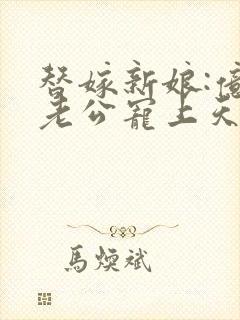 替嫁新娘:億
老公寵上天
馬煥斌